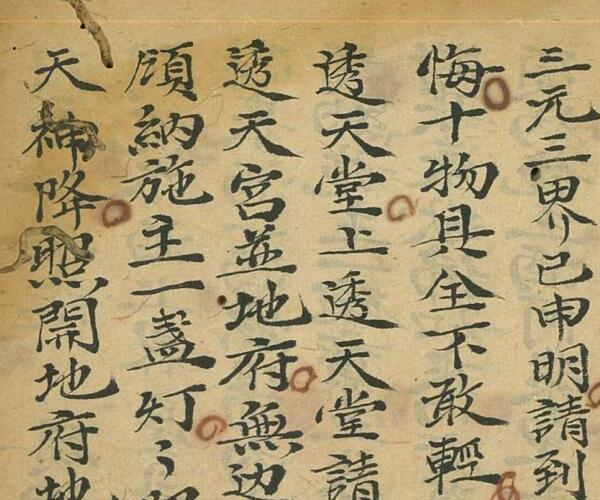 三元三界已申明請到
悔十物具全不敢輕
透天堂上透天堂請
透天宮並地府無边
頋納施主一盞灯〻照
天神降照開地府地